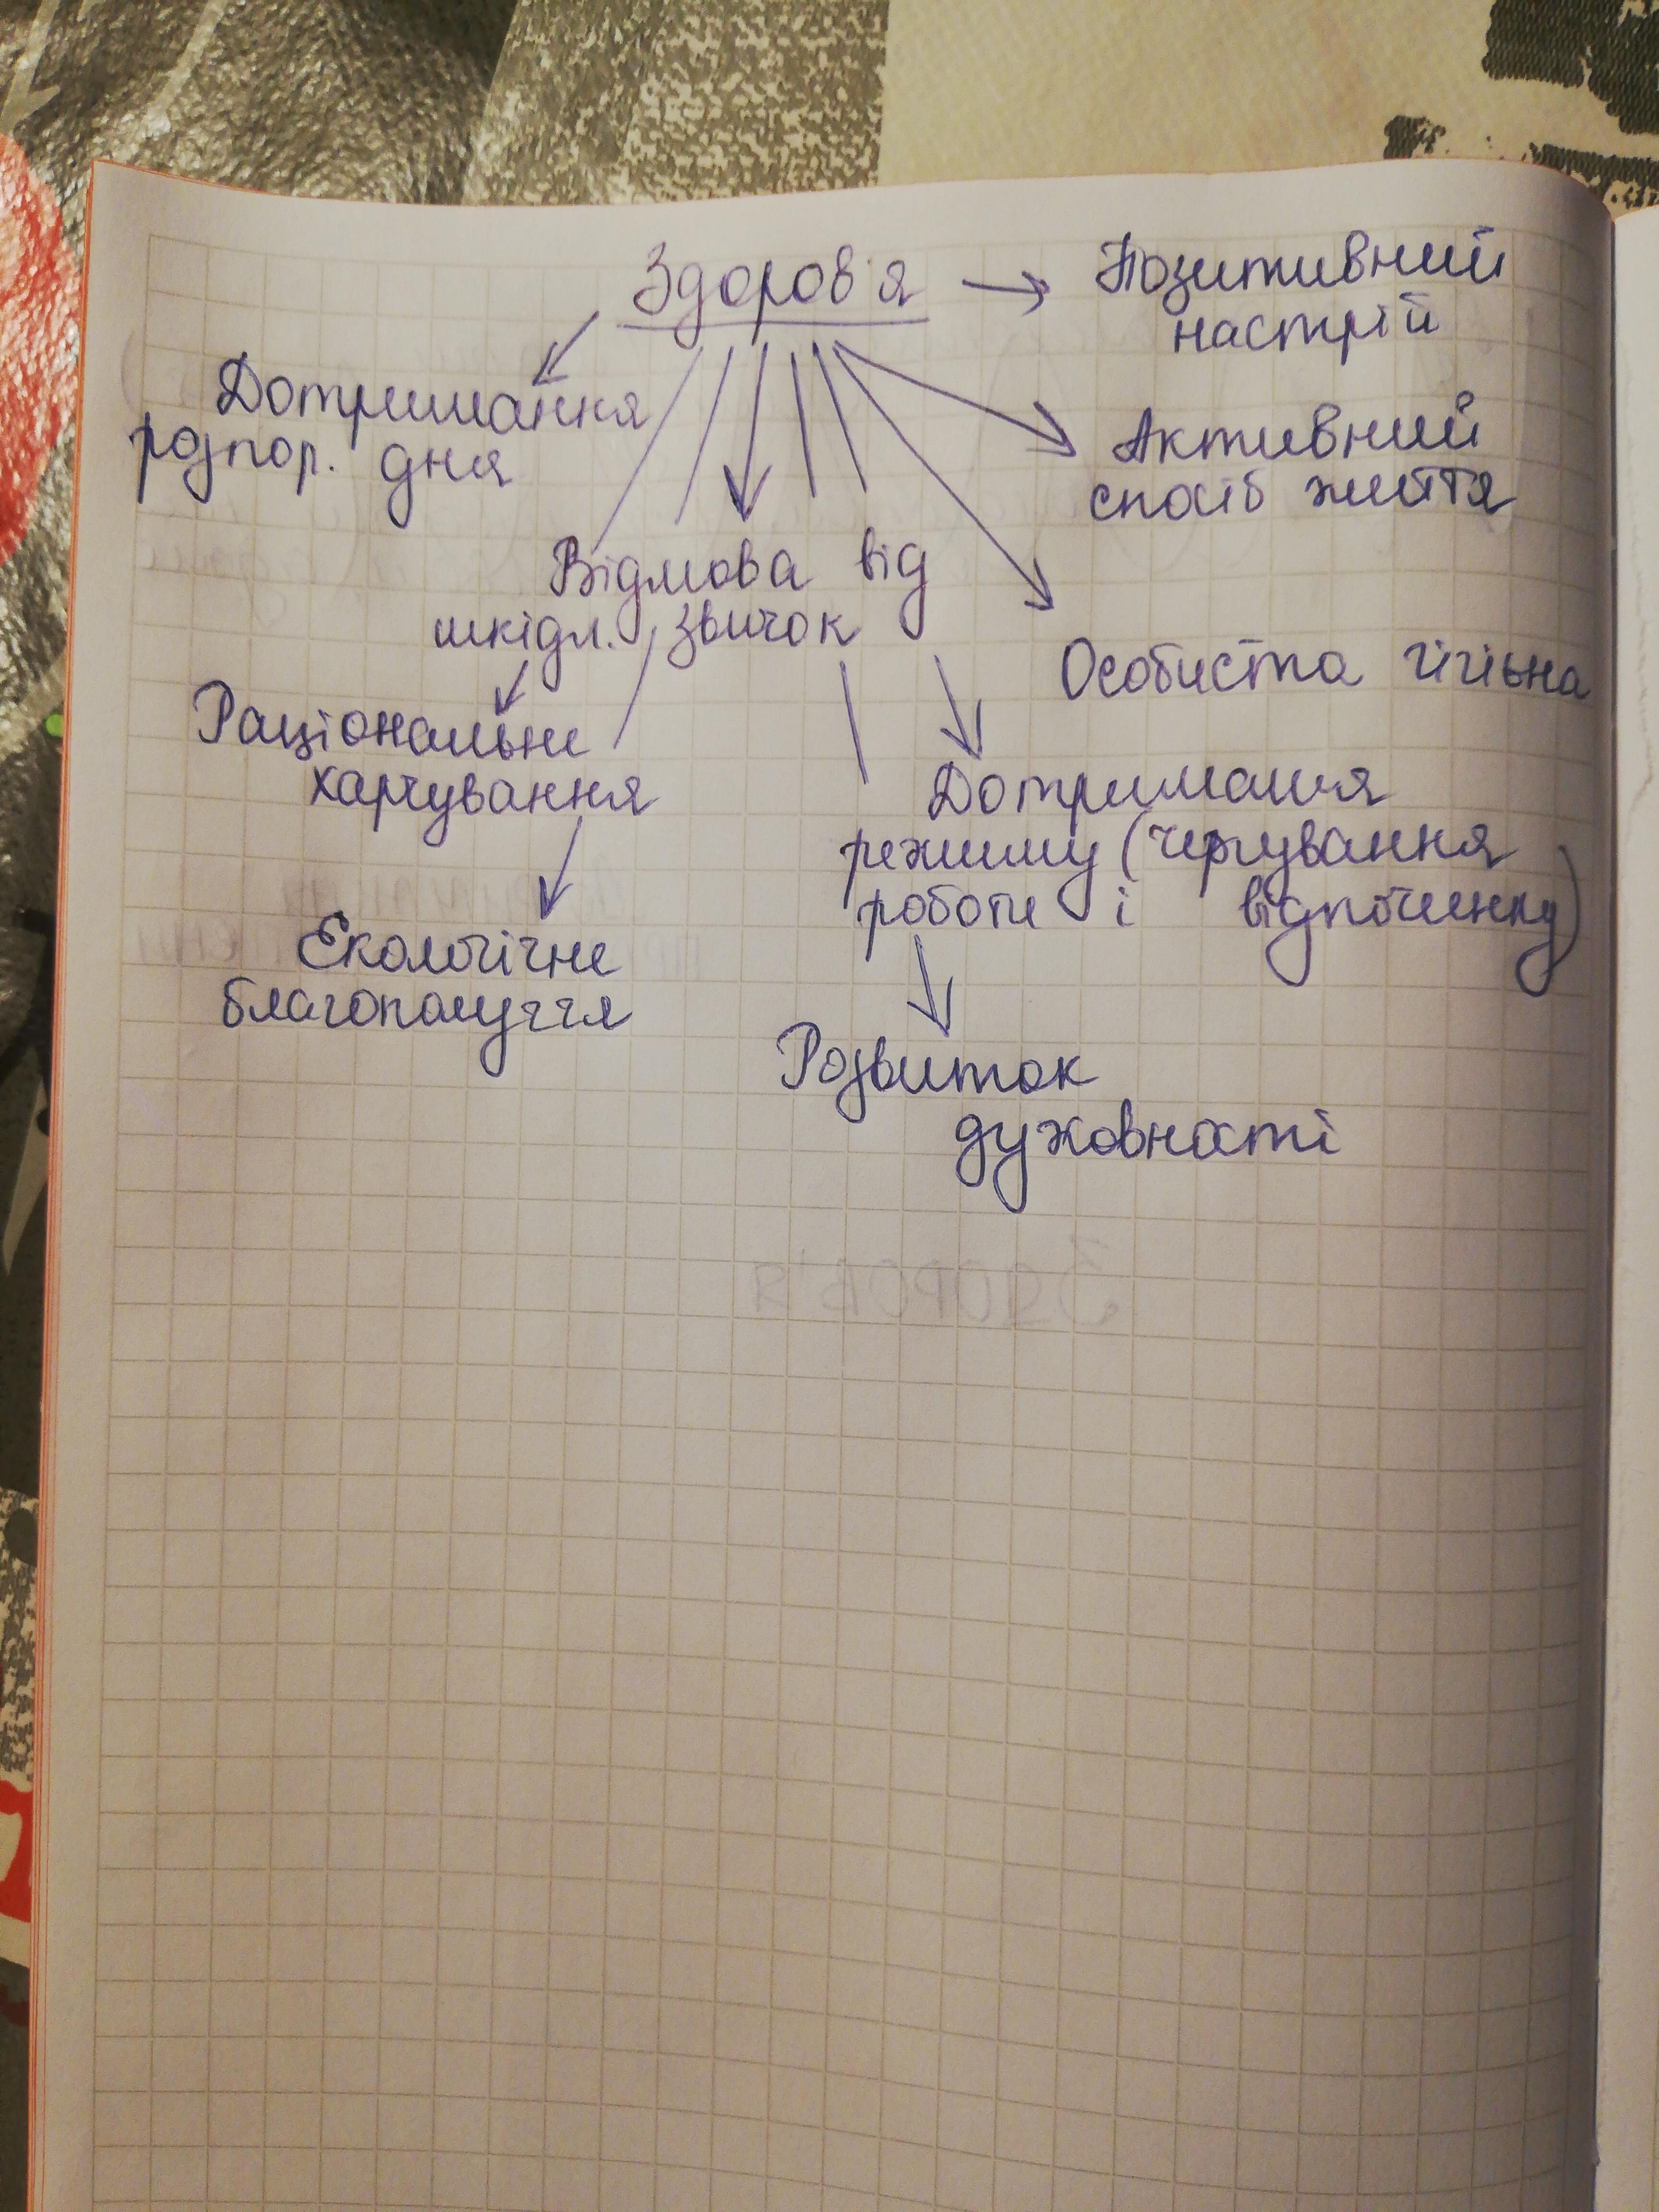 Здоров'я
Позитивний
настрій
Дотримання
розпор. дня
Активний
спосіб життя
Відмова від
шкідл. звичок
Особиста гігієна
Раціональне
харчування
Дотримання
режиму (чергування
роботи і відпочинку)
Екологічне
благополуччя
Розвиток
духовності